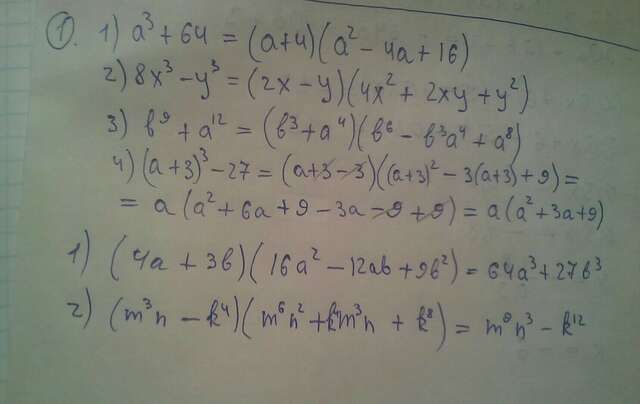 ①. 1) a³ + 64 = (a+4)(a² - 4a + 16)
2) 8x³ - y³ = (2x - y)(4x² + 2xy + y²)
3) b⁹ + a¹² = (b³ + a⁴)(b⁶ - b³a⁴ + a⁸)
4) (a+3)³ - 27 = (a+3-3)((a+3)² - 3(a+3) + 9) =
= a(a² + 6a + 9 - 3a - 9 + 9) = a(a² + 3a + 9)
1) (4a + 3b)(16a² - 12ab + 9b²) = 64a³ + 27b³
2) (m³n - k⁴)(m⁶n² + k⁴m³n + k⁸) = m⁹n³ - k¹²